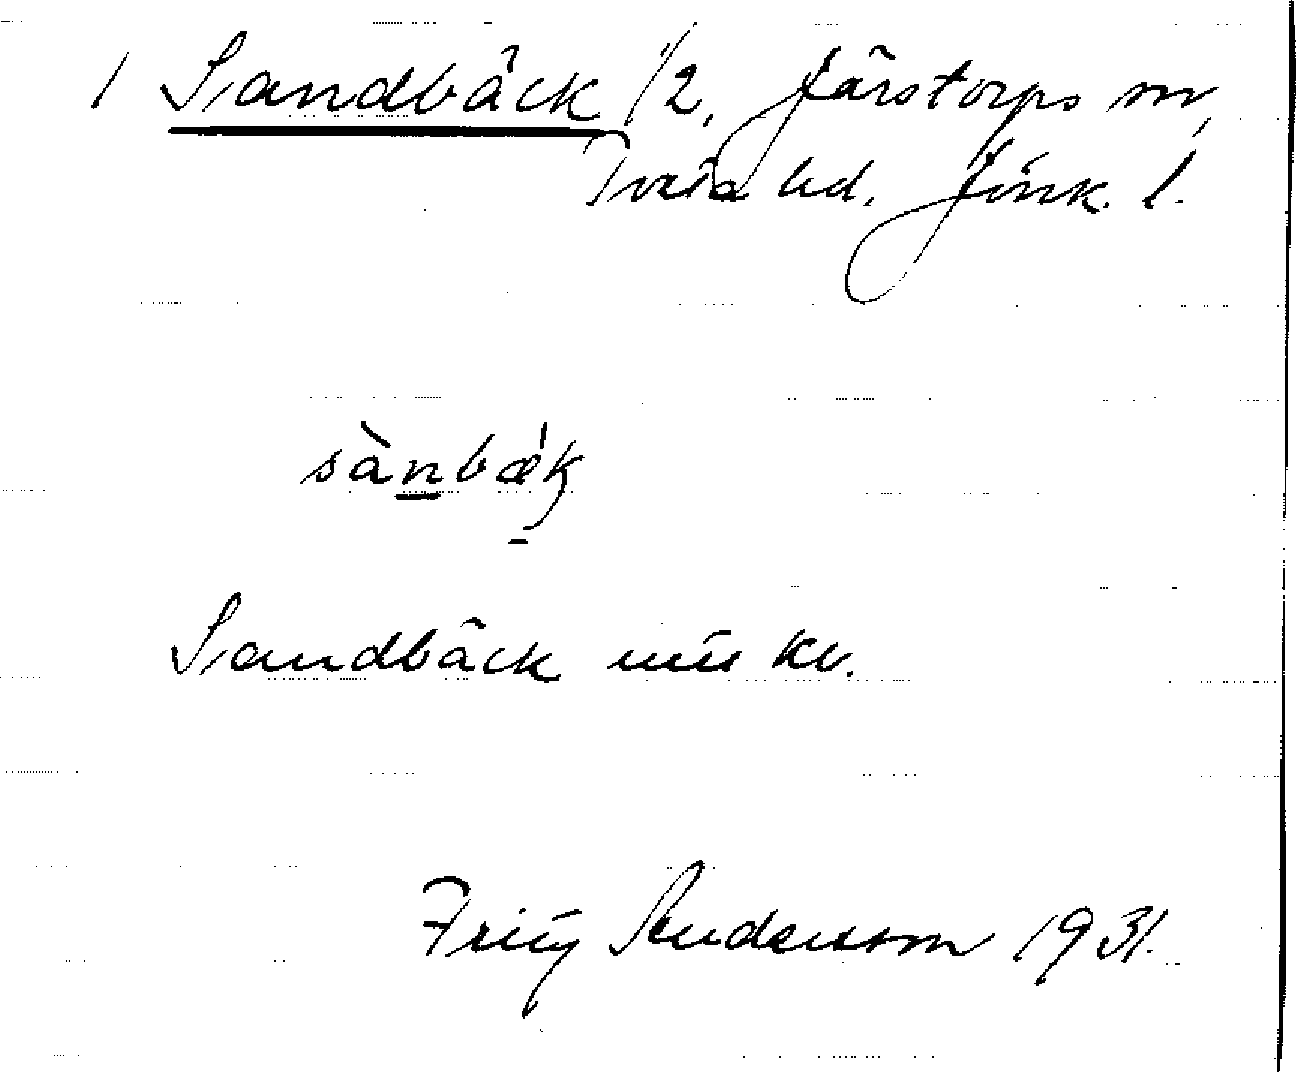 1 Sandbäck 1/2, Järstorps sn,
Tveta hd. Jönk. l.
sànbæ̀k
Sandbäck
kv.
Fritz Anderson 1931.